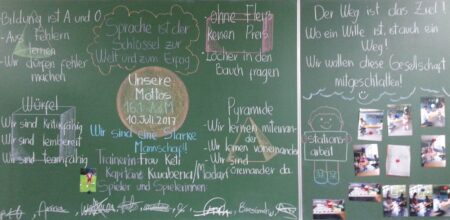 Bildung ist A und O
- Aus Fehlern
lernen
- Wir dürfen fehler
machen
Sprache ist der
Schlüssel zur
Welt und zum Erfolg
ohne Fleiß
keinen Preiß
Löcher in den
Bauch fragen
Unsere
Mottos
10. Juli 2017
Würfel
Wir sind Kritikfähig
Wir sind lernbereit
Wir sind Teamfähig
Wir sind eine Starke
Mannschaft!
Trainerin: Frau Keti
Kapitäne
Spieler und Spielerinnen
Pyramide
- Wir lernen miteinan-
der
- Wir lernen voneinander
- Wir sind
füreinander da
Der Weg ist das Ziel!
Wo ein Wille ist, ist auch ein
Weg!
Wir wollen diese Gesellschaft
mitgestallten!
Stations-
arbeit